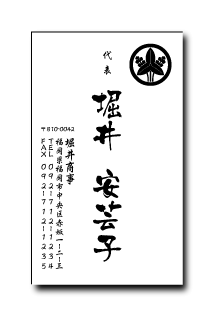 代表
堀井 安芸子
堀井商事
〒810-0042
福岡県福岡市中央区赤坂一-二-三
TEL 092-711-1234
FAX 092-711-1235